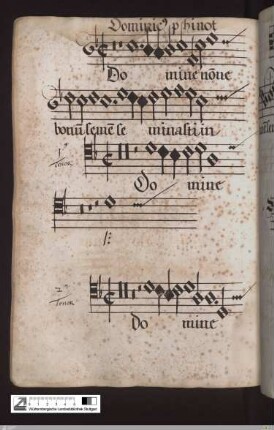 Dominicus phinot
Do mine nōne
bonū semē se minasti in
1us Tenor
Do mine
2us Tenor
Do mine
Württembergische Landesbibliothek Stuttgart